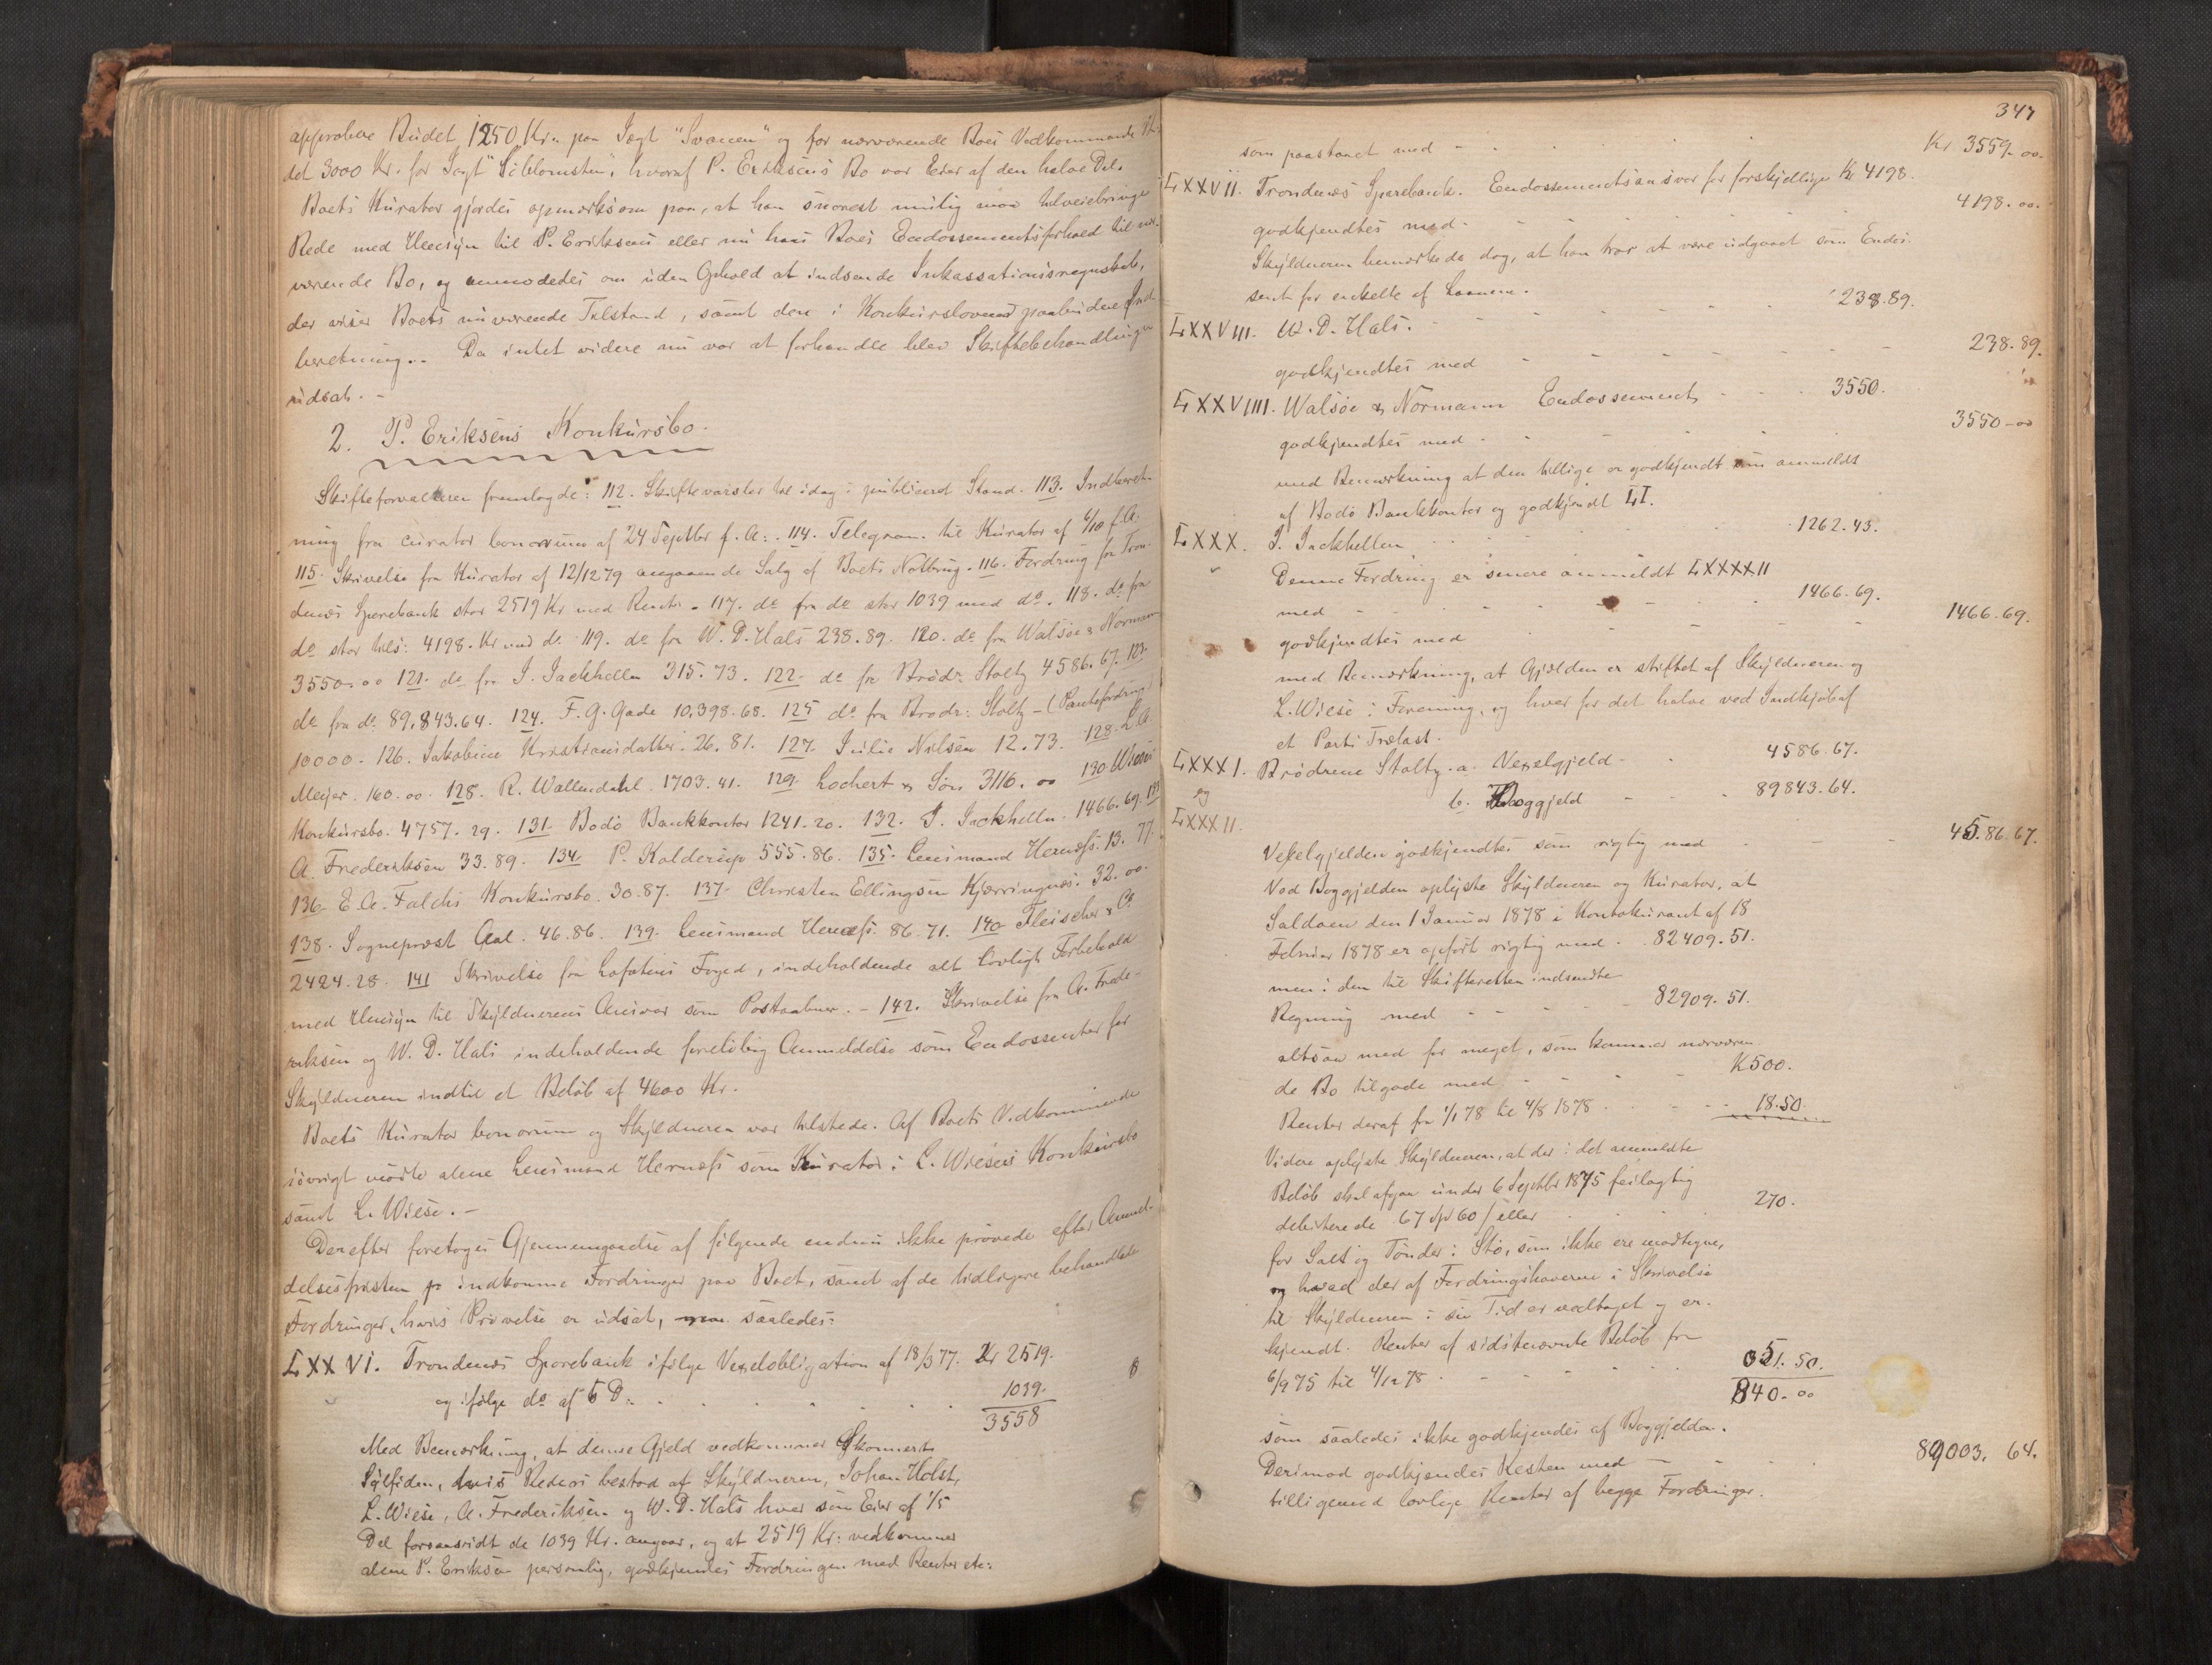 approbere Budet 1250 Kr. paa Jægt "Svanen" og for nærværende Boes Vedkommende
det 3000 Kr. for Jægt "Sølblomsten", hvoraf P. Eriksens Bo var Eier af den halve Del.
Boets Kurator gjordes opmærksom paa, at han snarest mulig maa tilveiebringe
Rede med Hensyn til P. Eriksens eller nu hans Boes Endossementsforhold til nær-
værende Bo, og anmodedes om uden Ophold at indsende Inkassationsregnskab,
der viser Boets nuværende Tilstand, samt den i Konkursloven paabudene Ind-
beretning. Da intet videre nu var at forhandle blev Skiftebehandlingen
udsat. -
2. P. Eriksens Konkursbo.
Skifteforvalteren fremlagde: 112. Skiftevarsler til idag i publiceret Stand. 113. Indberet-
ning fra curator bonorum af 24 Septbr f. A. 114. Telegram til Kurator af 6/10 f. A.
115. Skrivelse fra Kurator af 12/12 79 angaaende Salg af Boets Notbrug. 116. Fordring fra Tron-
denæs Sparebank stor 2519 Kr med Renter. 117. do fra do stor 1039 med do. 118. do fra
do stor tils: 4198. Kr med do 119. do fra W. D. Hals 238.89. 120. do fra Walsøe & Normann
3550.00 121. do fra J. Jackhelln 315.73. 122. do fra Brødr. Stoltz 4586.67. 123.
do fra do 89,843.64. 124. F. G. Gade 10,398.68. 125 do fra Brødr: Stoltz - (Pantefordring)
10000. 126. Jakobine Kristiansdatter. 26.81. 127. Julie Nilsen 12.73. 128. L. A.
Meyer. 160.00. 128. R. Wallendahl. 1703.41. 129. Lochert & Søn 3116.00 130 Wieses
Konkursbo. 4757.29. 131. Bodø Bankkontor 1241.20. 132. J. Jackhelln. 1466.69. 133
A. Frederiksen 33.89. 134. P. Kolderup 555.86. 135. Lensmand Hernæss. 13.77.
136. E. A. Falchs Konkursbo. 30.87. 137. Christen Ellingsen Kjærringnes. 32.00.
138. Sogneprest Aal. 46.86. 139. Lensmand Hernæss. 86.71. 140 Fleischer & Co
2424.28. 141 Skrivelse fra Lofotens Foged, indeholdende alt lovligt Forbehold
med Hensyn til Skyldnerens Ansvar som Postaabner. - 142. Skrivelse fra A. Frede-
riksen og W. D. Hals indeholdende foreløbig Anmeldelse som Endossenter for
Skyldneren indtil et Beløb af 4600 Kr.
Boets Kurator bonorum og Skyldneren var tilstede. Af Boets Vedkommende
iøvrigt mødte alene Lensmand Hernæss som Kurator i L. Wieses Konkursbo
samt L. Wiese. -
Derefter foretoges Gjennemgaaelse af følgende endnu ikke prøvede efter Anmel-
delsesfristen indkomne Fordringer paa Boet, samt af de tidligere behandlede
Fordringer, hvis Prøvelse er udsat, saaledes:
LXXVI. Trondenæs Sparebank ifølge Vexelobligation af 18/3 77. Kr 2519.
og ifølge do af S. D. 1039.
3558
Med Bemærkning, at denne Gjeld vedkommer Skonnert
Sylfiden, hvis Rederi bestod af Skyldneren, Johan Holst,
L. Wiese, A. Frederiksen og W. D. Hals hver som Eier af 1/5
Del forsaavidt de 1039 Kr. angaar, og at 2519 Kr: vedkommer
alene P. Eriksen personlig, godkjendes Fordringen med Renter etc:
347
som paastaaet med - Kr 3559.00.
LXXVII. Trondenæs Sparebank. Endossementsansvar for forskjellige Kr 4198.
godkjendtes med - 4198.00.
Skyldneren bemærkede dog, at han tror at være udgaaet som Endos-
sent for enkelte af Laanene.
LXXVIII. W. D. Hals. 238.89.
godkjendtes med 238.89.
LXXVIIII. Walsøe & Normann Endossement 3550.
godkjendtes med 3550-00
med Bemærkning at den tillige er godkjendt som anmeldt
af Bodø Bankkontor og godkjendt LI.
LXXX. J. Jackhellen 1262.43.
Denne Fordring er senere anmeldt LXXXXII
med 1466.69.
godkjendtes med 1466.69.
med Bemærkning, at Gjælden er stiftet af Skyldneren og
L. Wiese i Forening, og hver for det halve ved Indkjøb af
et Parti Trælast.
LXXXI. Brødrene Stoltz. a. Vexelgjeld 4586.67.
og b. Boggjeld 89843.64.
LXXXII.
Vexelgjelden godkjendtes som rigtig med 4586.67.
Ved Boggjelden oplyste Skyldneren og Kurator, at
Saldoen den 1 Januar 1878 i Kontokurant af 18
Februar 1878 er opført rigtig med 82409.51.
men i den til Skifteretten indsendte
Regning med 82909.51.
altsaa med for meget, som kommer nærværen-
de Bo tilgode med K500.
Renter deraf fra 1/1 78 til 4/8 1878 18.50.
Videre oplyste Skyldneren, at der i det anmeldte
Beløb skal afgaa under 6 Septbr 1875 feilagtig
debiterede 67 Spd 60 s eller 270.
for Salt og Tønder i Stø, som ikke ere modtagne,
og hvad der af Fordringshaverne i Skrivelse
til Skyldneren i sin Tid er vedtaget og er-
kjendt. Renter af sidstnævnte Beløb fra
6/9 75 til 4/12 78 51.50.
840.00
som saaledes ikke godkjendes af Boggjelden.
Derimod godkjendes Resten med - 89003.64.
tilligemed lovlige Renter af begge Fordringer.